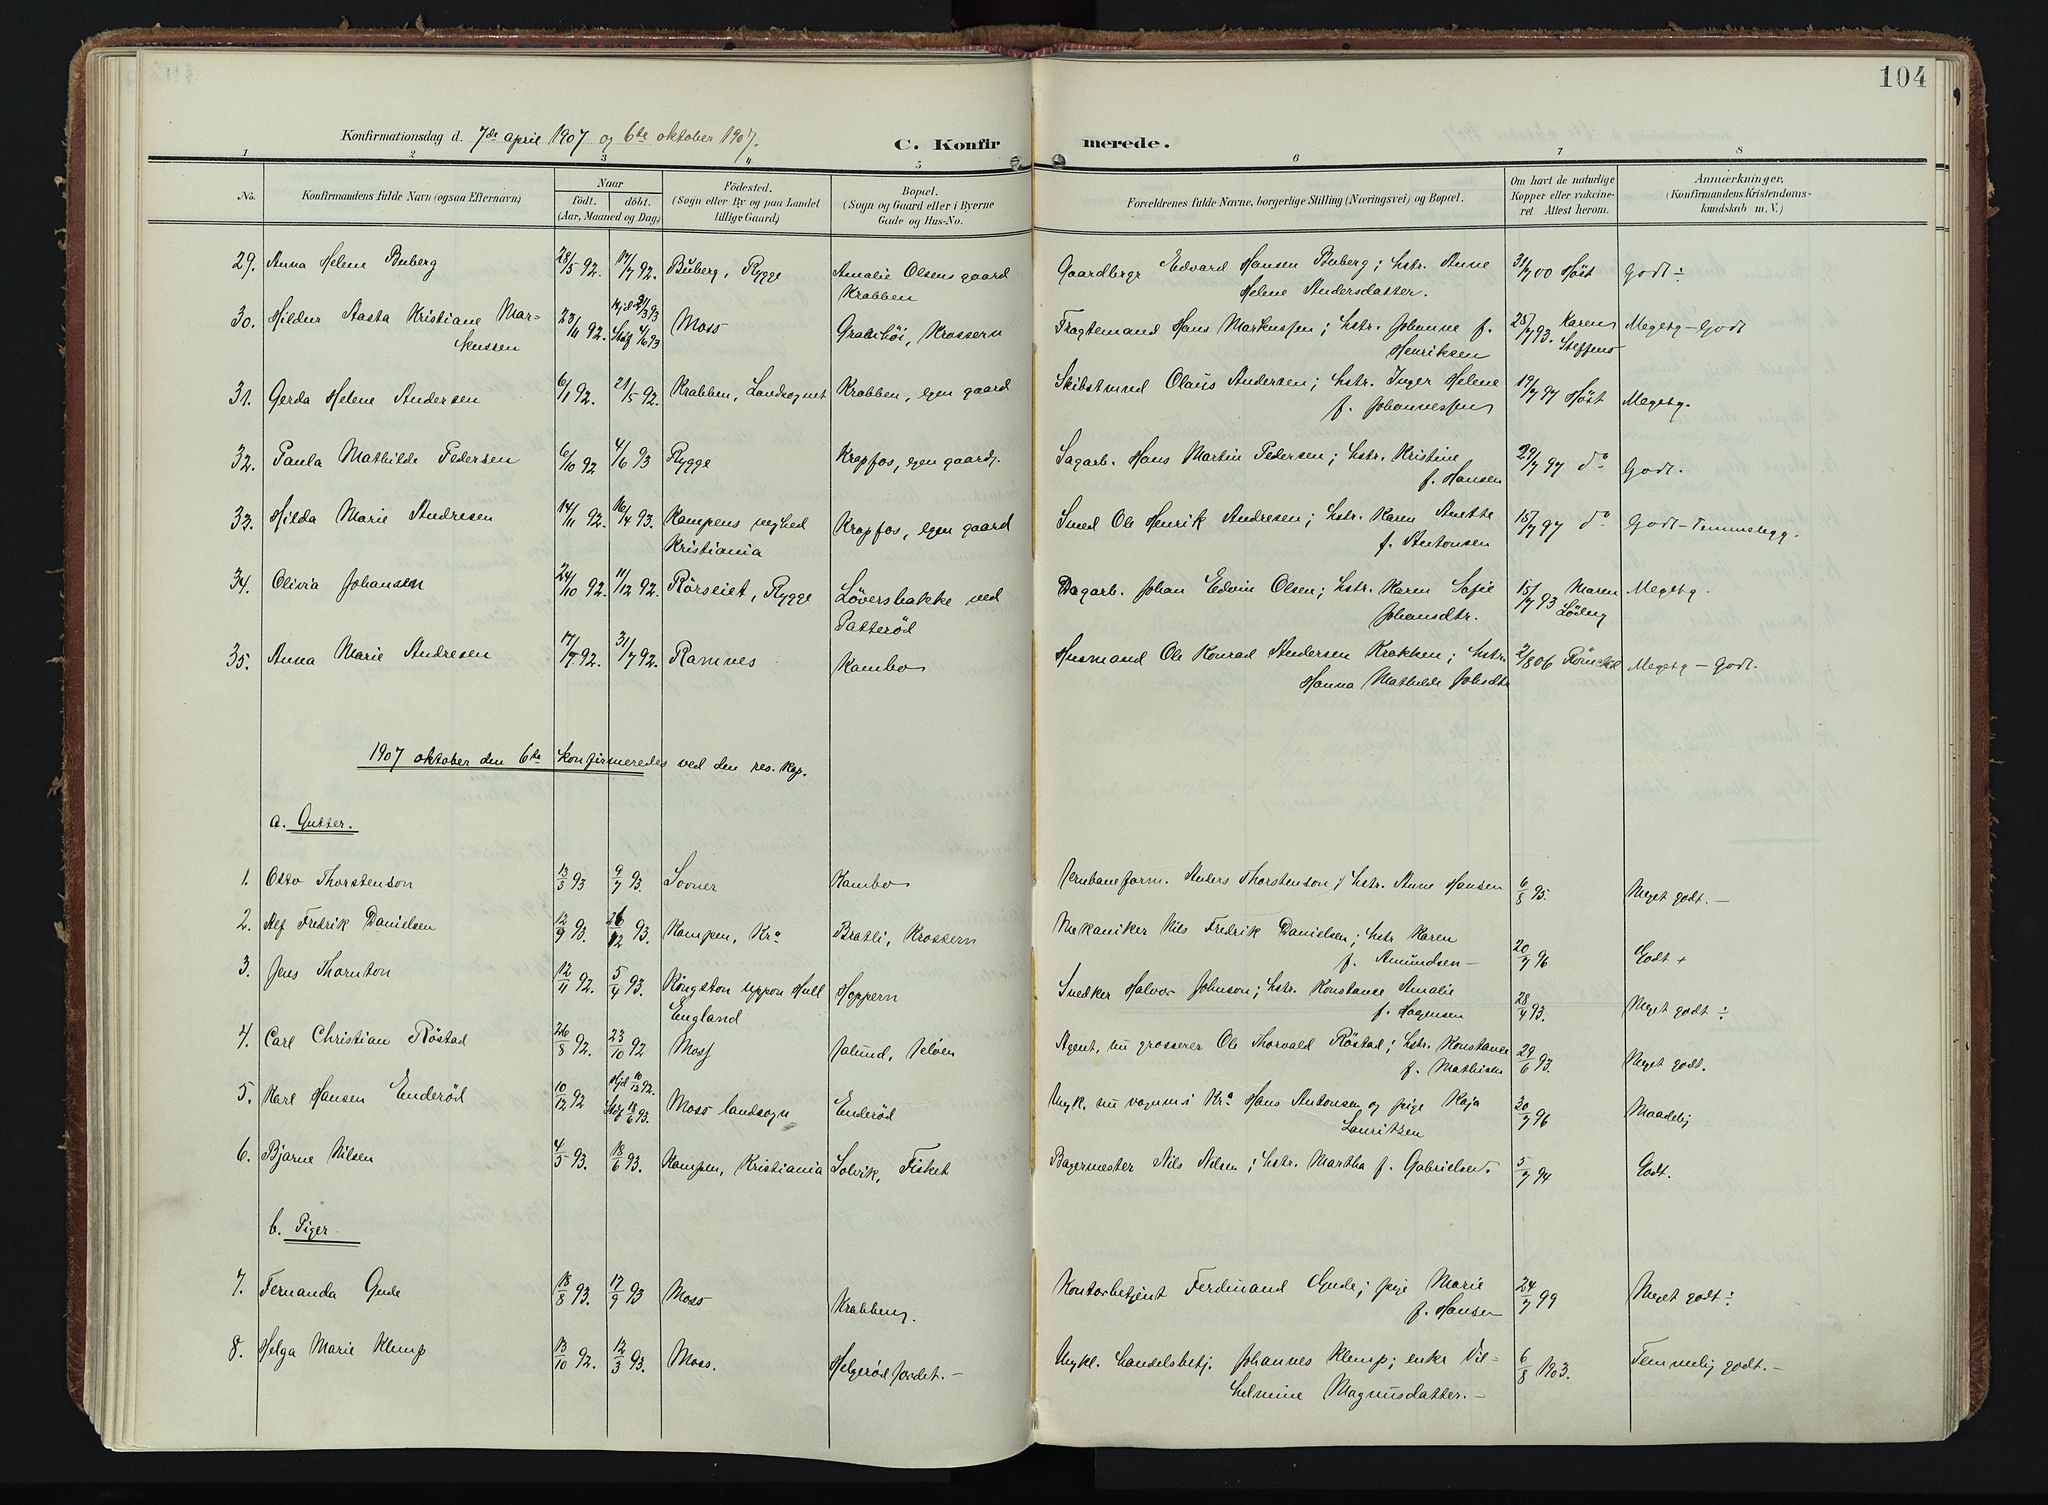 104
Konfirmationsdag d. 7de april 1907 og 6te oktober 1907.
C. Konfirmerede.
1 2 3 4 5 6 7 8
No. Konfirmandens fulde Navn (ogsaa Efternavn) Naar født. døbt. (Aar, Maaned og Dag) Fødested. (Sogn eller By og paa Landet tillige Gaard) Bopæl. (Sogn og Gaard eller i Byerne Gade og Hus-No. Forældrenes fulde Navne, borgerlige Stilling (Næringsvei) og Bopæl. Om havt de naturlige Kopper eller vakcineret. Attest herom. Anmærkninger. (Konfirmandens Kristendomskundskab m. V.)
29. Anna Helene Buberg 28/5 92. 17/7 92. Buberg, Rygge Amalie Olsens gaard Gaardbegr Edvard Hansen Buberg; hstr. Anne 31/7 00 Høst Godt ÷
Krabben Helene Andersdatter.
30. Hildur Aasta Kristiane Mar- 23/11 92. Hjd 21/3 93 Moss Granhøi, Krossern Fragtemand Hans Markussen; hstr. Johanne f. 25/7 93. Karen Megetg – Godt
kussen Stedf 4/6 93 Henriksen Steffens
31. Gerda Helene Andersen 6/1 92. 21/5 92. Krabben, Landsognet Krabben, egen gaard Skibstmnd Olaus Andersen; hstr. Inger Helene 19/7 97 Høst Megetg.
f. Johannessen
32. Paula Mathilde Pedersen 6/10 92 4/6 93 Rygge Krapfos, egen gaard. Sagarb. Hans Martin Pedersen; hstr. Kristine 29/7 97 do Godt.
f. Hansen
33. Hilda Marie Andresen 14/11 92. 16/4 93. Kampens meghed Krapfos, egen gaard Smed Ole Henrik Andresen; hstr. Karen Anette 15/7 97 do Godt – Temmeligg.
Kristiania f. Antonsen
34. Olivia Johansen 24/10 92. 11/12 92. Rørseiet, Rygge Løversbakke ved Dagarb. Johan Edvin Olsen; hstr. Karen Sofie 15/7 93 Maren Megetg.
Patterød Johansdtr. Løding
35. Anna Marie Andresen 17/7 92. 31/7 92. Ramnes Kambo Husmand Ole Konrad Andersen Krokken; hstr. 2/8 06 Megetg – Godt.
Hanna Mathilde Johsdtr
1907 oktober den 6te konfirmeredes ved den res. kap.
a. Gutter.
1. Otto Thorstenson 13/3 93 9/7 93. Sooner Kambo Jernbaneform. Anders Thorstenson; hstr. Anne Hansen 6/8 95. Meget godt. –
2. Alf Fredrik Danielsen 12/9 93. 26/12 93. Kampen, Kra Bratli, Krossern Mekaniker Nils Fredrik Danielsen; hstr Karen 20/7 96 Godt +
f. Amundsen –
3. Jens Thornton 12/11 92. 5/4 93. Kongston uppon Hull Hoppern Snedker Halvor Johnson; hstr. Konstanse Amalie 28/4 93. Meget godt ÷
England f. Hagensen
4. Carl Christian Røstad 26/8 92. 23/10 92 Moss Jalund, Jeløen Agent, nu grosserer Ole Thorvald Røstad; hstr. Konstanse 29/6 93. Meget godt.
f. Mathisen
5. Karl Hansen Enderød 10/12 92 Hjd 10/12 92. Moss landsogn Enderød Ungk. nu vognm. i Kra Hans Antonsen og pige Kaja 20/7 96 Maadelig
Stedf 18/6 93. Lauritzen
6. Bjarne Nilsen 4/5 93. 18/6 93. Kampen, Kristiania Solvik, Fisket Bagermester Nils Nilsen; hstr. Martha f. Gabrielsen. 5/7 94 Godt.
b. Piger
7. Fernanda Gude 18/8 93. 17/9 93 Moss Krabben. Kontorbetjent Ferdinand Gude; pige Marie 24/7 99 Meget godt ÷
f. Hansen
8. Helga Marie Klemp 13/10 92. 12/3 93. Moss. Helgerødjordet. – Ungkl. handelsbetj. Johannes Klemp; enke Vil- 6/8 1903. Temmelig godt. –
helmine Magnusdatter. –